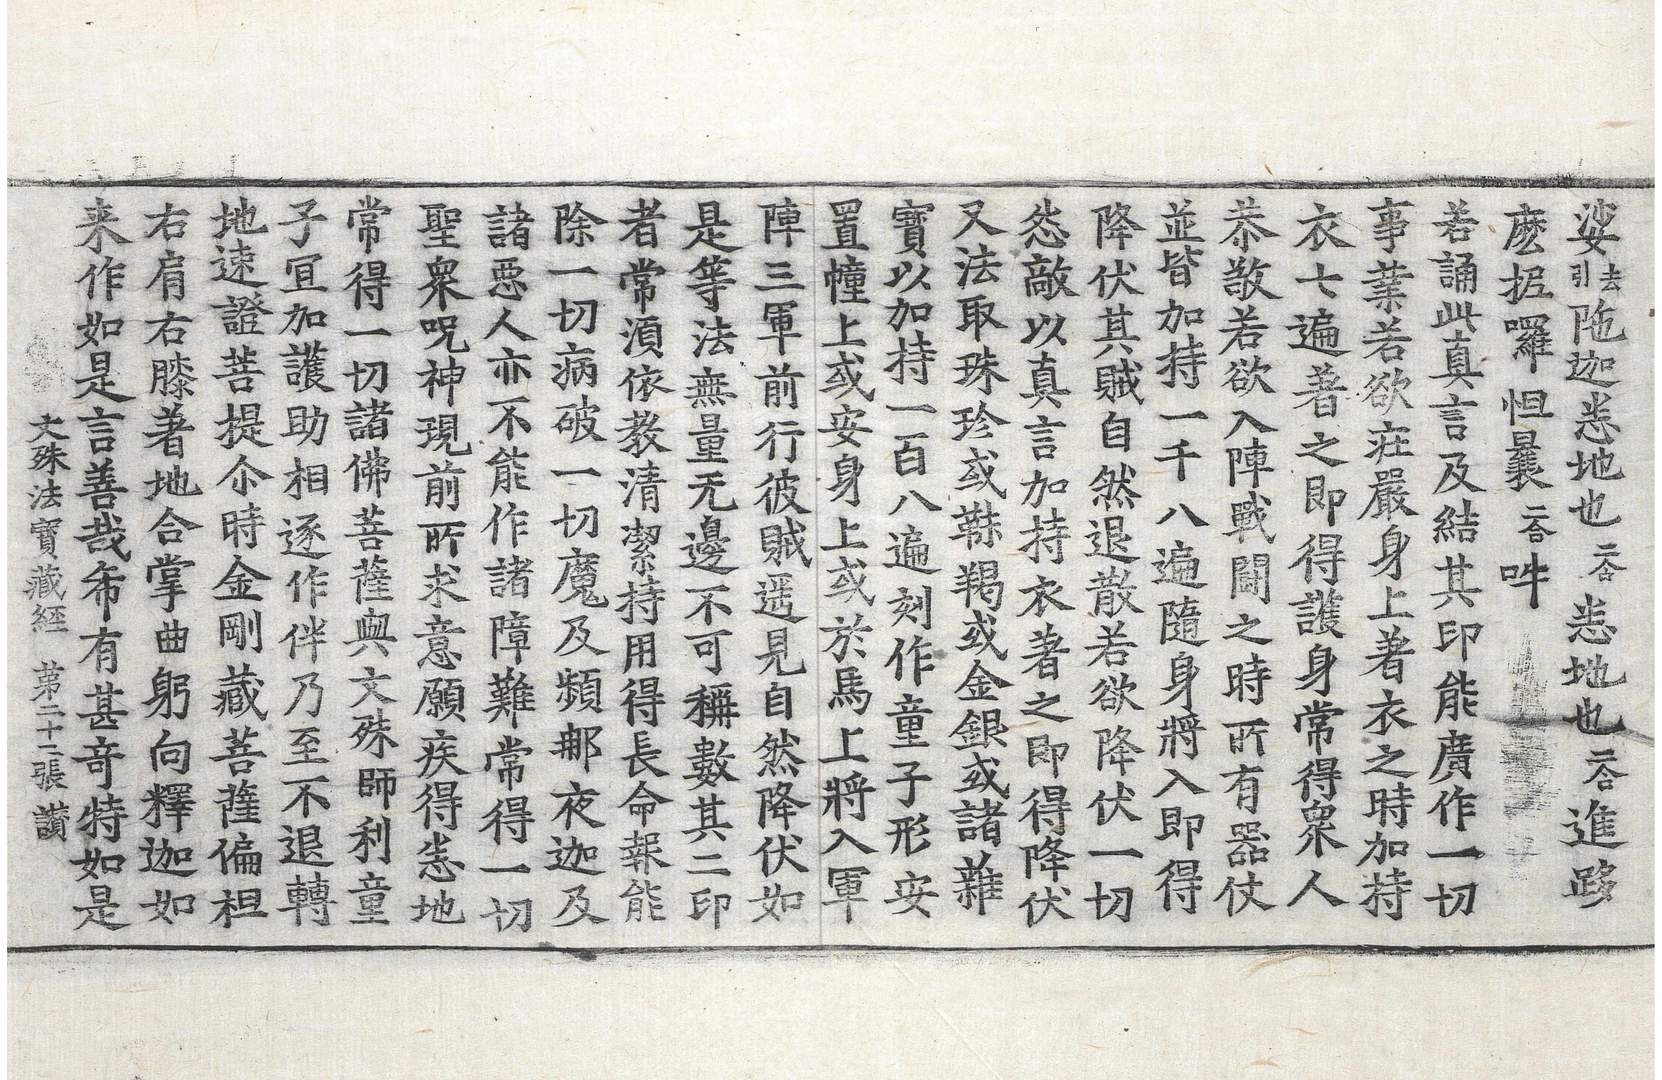 娑去引陁迦恙地也二合恙地也二合進跢
麽抳囉怛曩二合吽
若誦此真言及結其印能廣作一切
事業若欲庄嚴身上著衣之時加持
衣七遍著之即得護身常得衆人
恭敬若欲入陣戰鬪之時所有器仗
並皆加持一千八遍隨身將入即得
降伏其賊自然退散若欲降伏一切
怨敵以真言加持衣著之即得降伏
又法取珠珍或靺羯或金銀或諸雜
寶以加持一百八遍刻作童子形安
置幢上或安身上或於馬上將入軍
陣三軍前行彼賊遥見自然降伏如
是等法無量无邊不可稱數其二印
者常湏依教清潔持用得長命報能
除一切病破一切魔及頻那夜迦及
諸惡人亦不能作諸障難常得一切
聖衆呪神現前所求意願疾得恙地
常得一切諸佛菩薩與文殊師利童
子冝加護助相逐作伴乃至不退轉
地速證菩提尒時金剛藏菩薩偏袒
右肩右膝著地合掌曲躬向釋迦如
来作如是言善哉希有甚竒特如是
文殊法寶藏經 第二十二張 讃